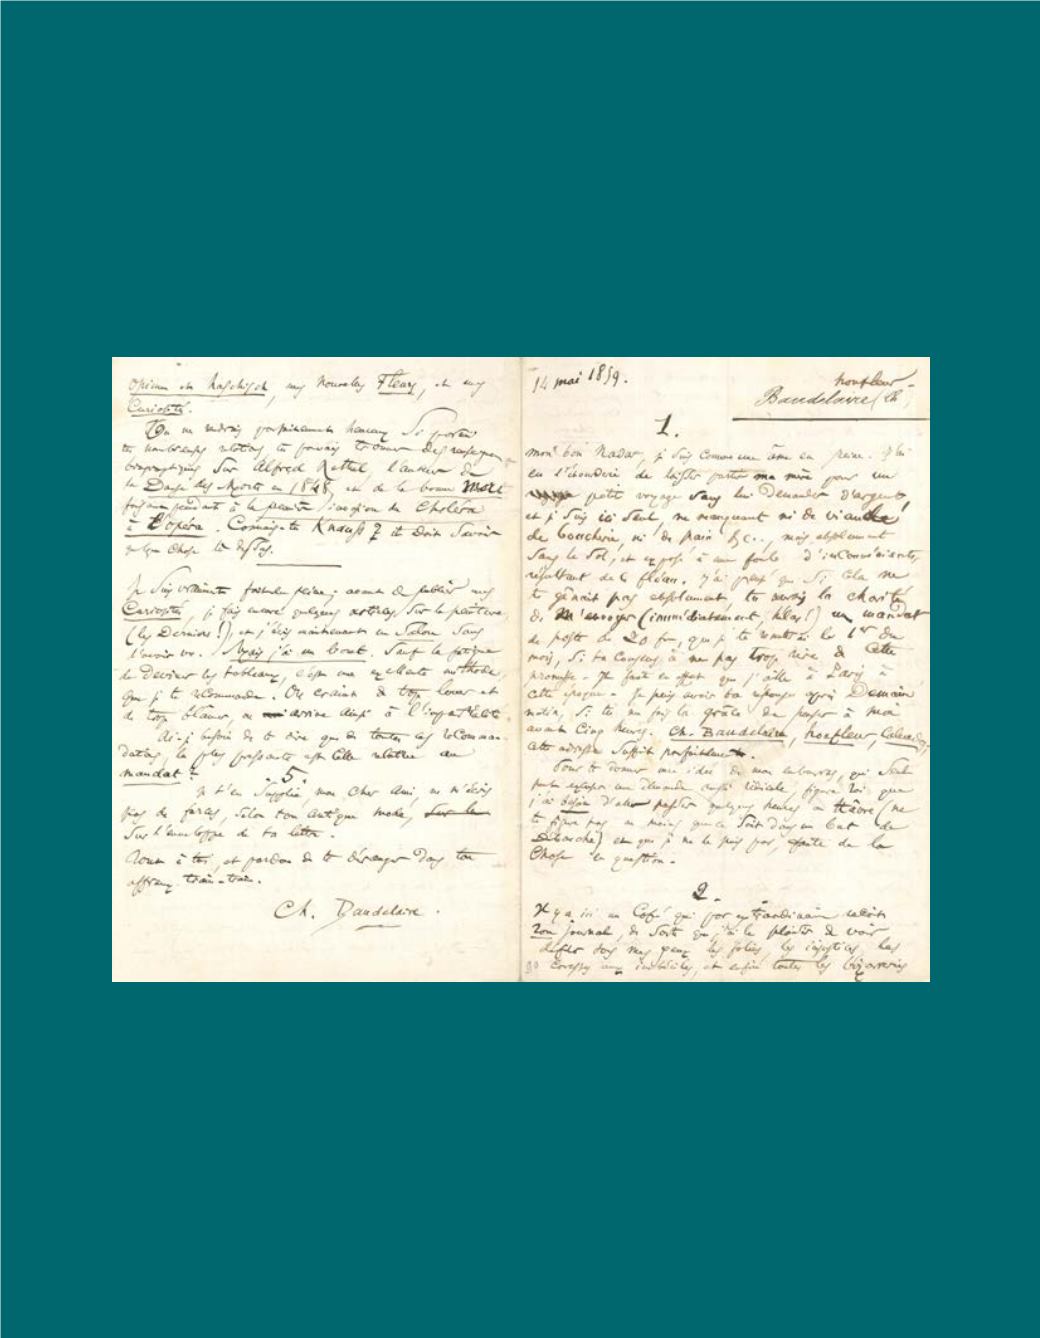 14 mai 1859.
honfleur –
Baudelaire (Ch)
1.
mon bon Nadar, je suis comme une âme en peine. J'ai
eu l'étourderie de laisser partir ma mère pour un
petit voyage sans lui demander d'argent,
et je suis ici seul, ne manquant ni de viande
de boucherie, ni de pain &c.., mais absolument
sans le sol, et exposé à une foule d'inconvénients,
résultant de ce fléau. J'ai pensé que si cela ne
te gênait pas absolument, tu aurais la charité
de m'envoyer (immédiatement, hélas!) un mandat
de poste de 20 fr., que je te remettrai le 1er du
mois, si tu consens à ne pas trop rire de cette
promesse. – Il faut en effet que j'aille à Paris à
cette époque. – Je puis avoir ta réponse après Demain
matin, si tu me fais la grâce de penser à moi
avant cinq heures. Ch. Baudelaire, honfleur, Calvados,
cette adresse suffit parfaitement.
Pour te donner une idée de mon embarras, qui seul
peut excuser une demande aussi ridicule, figure toi que
j'ai besoin d'aller passer quelques heures au Hâvre (ne
te figure pas au moins que ce soit dans un but de
Débauche) et que je ne le puis pas, faute de la
chose en question. –
2.
Il y a ici un Café qui par extraordinaire reçoit
ton journal, de sorte que j'ai le plaisir de voir
défiler sous mes yeux les folies, les injustices, les
caresses aux imbéciles, et enfin toutes les bizarreries
opium et haschisch, mes nouvelles Fleurs, et mes
Curiosités.
Tu me rendrais parfaitement heureux si parmi
tes nombreuses relations tu pouvais trouver des renseignemen
biographiques sur Alfred Rethel, l'auteur de
la Danse des Morts en 1848, et de la bonne mort
faisant pendant à la première invasion du Choléra
à l'opéra. Connais-tu Knauss? il doit savoir
quelque chose là-dessus.
Je suis vraiment fort en peine; avant de publier mes
Curiosités, je fais encore quelques articles sur la peinture,
(les derniers!), et j'écris maintenant un Salon sans
l'avoir vu. Mais j'ai un livret. Sauf la fatigue
de deviner les tableaux, c'est une excellente méthode,
que je te recommande. On craint de trop louer et
de trop blâmer, on arrive ainsi à l'impartialité.
Ai-je besoin de te dire que de toutes les recomman-
dations, la plus pressante est celle relative au
mandat?
5.
Je t'en supplie, mon cher ami ne m'écris
pas de farces, selon ton antique mode,
sur l'enveloppe de ta lettre.
Tout à toi, et pardon de te déranger dans ton
affreux train-train.
Ch. Baudelaire.